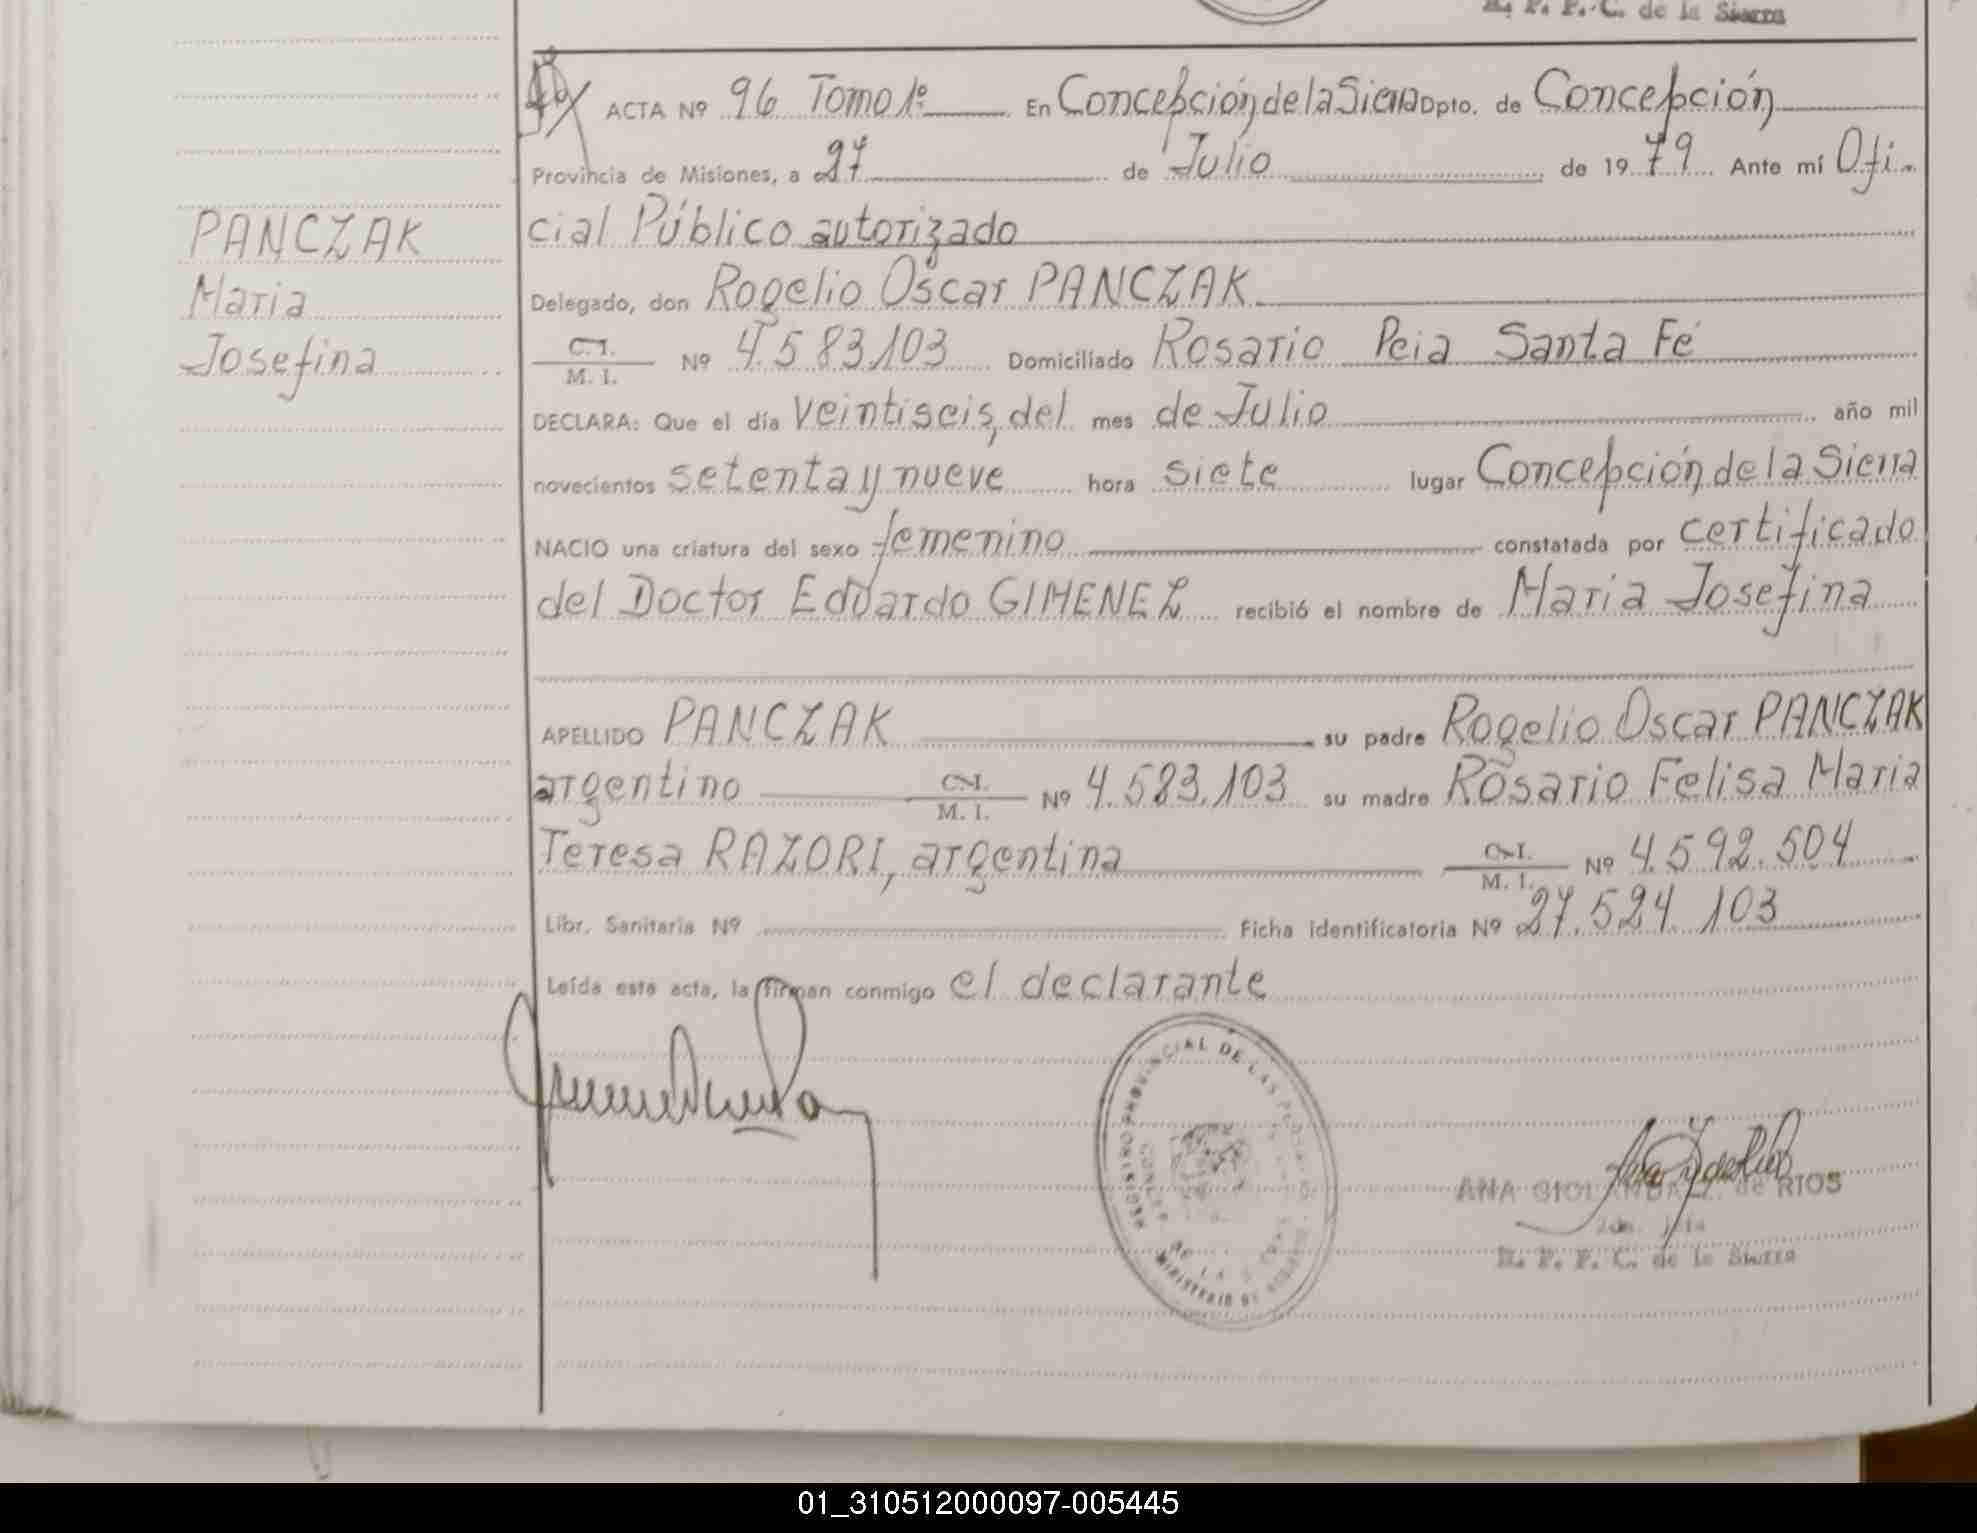 R. P. P. C. de la Sierra
ACTA Nº 96 Tomo 1º En Concepción de la Sierra Dpto. de Concepción
Provincia de Misiones, a 27 de Julio de 1979 Ante mí Ofi-
cial Público autorizado
PANCZAK
Maria
Josefina
Delegado, don Rogelio Oscar PANCZAK
C. I.
M. I. Nº 4.583.103 Domiciliado Rosario Pcia Santa Fé
DECLARA: Que el día veintiseis, del mes de Julio año mil
novecientos setenta y nueve hora siete lugar Concepción de la Sierra
NACIO una criatura del sexo femenino constatada por certificado
del Doctor Eduardo GIMENEZ recibió el nombre de Maria Josefina
APELLIDO PANCZAK su padre Rogelio Oscar PANCZAK
argentino C. I. M. I. Nº 4.583.103 su madre Rosario Felisa Maria
Teresa RAZORI, argentina C. I. M. I. Nº 4.592.504
Libr. Sanitaria Nº Ficha identificatoria Nº 27.524.103
Leída esta acta, la firman conmigo el declarante
REGISTRO PROVINCIAL DE LAS PERSONAS
MINISTERIO DE
ANA de RIOS
R. P. P. C. de la Sierra
01_310512000097-005445